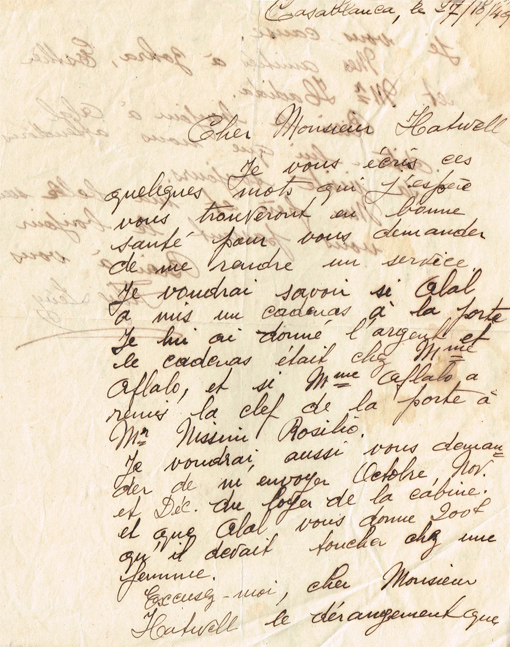 Casablanca, le 27/12/49
Cher Monsieur Hatwell
Je vous écris ces
quelques mots qui j'espère
vous trouveront en bonne
santé pour vous demander
de me rendre un service
Je voudrai savoir si Alal
a mis un cadenas à la porte
Je lui ai donné l'argent et
le cadenas était chez Mme
Aflalo, et si Mme Aflalo a
remis la clef de la porte à
Mr Nissim Rosilio.
Je voudrai aussi vous deman-
der de m'envoyer Octobre, Nov.
et Déc. du loyer de la cabine.
et que Alal vous donne 200f
qu'il devait toucher chez une
femme.
Excusez-moi, cher Monsieur
Hatwell le dérangement que